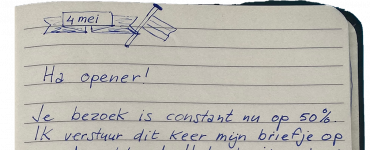 4 mei
Ha opener!
Je bezoek is constant nu op 50%.
Ik verstuur dit keer mijn briefje op